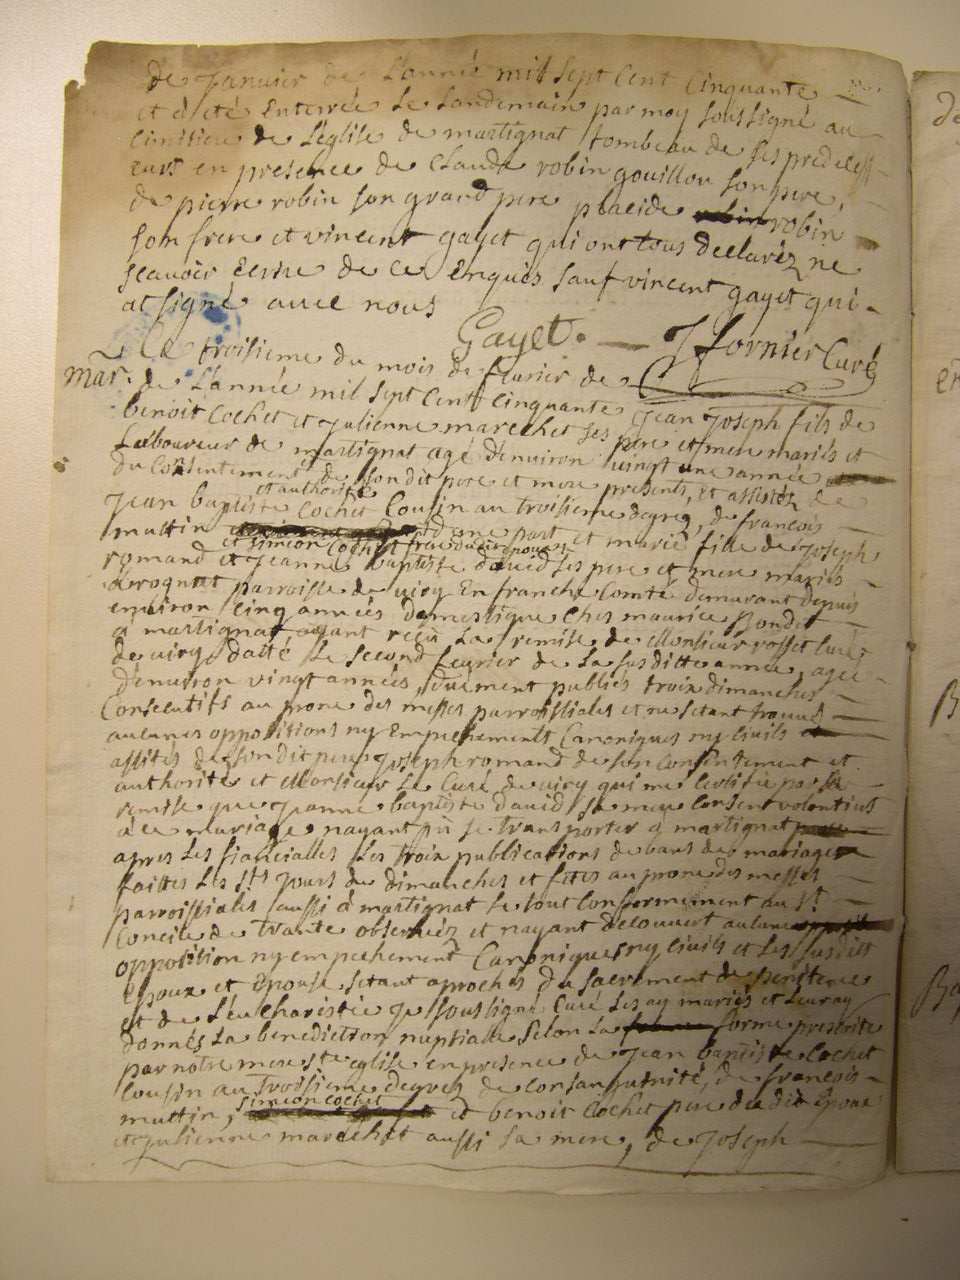 de Janvier de L'année mil sept Cent Cinquante
et a été Enterrée Le Landemain par moy soussigné au
Cimitiere de L'église de martignat tombeau de ses predecess
eurs en presence de Claude robin gouillon son pere,
de pierre robin son grand pere placide robin
son frere et vincent gayet qui ont tous declaréz ne
scavoir Ecrire de ce Enquis sauf vincent gayet qui
at signé avec nous
Gayet. fornier Curé
Mar.
Le troisieme du mois de fevrier de
de L'année mil sept Cent Cinquante Jean Joseph fils de
benoit Cochet et Julienne marechet ses pere et mere mariés et
Laboureur de martignat agé d'environ vingt une année
du Consentement de son dit pere et mere presents, et assistéz de
et authorité
Jean baptiste Cochet Cousin au troisieme degrez, de francois
muttin d'une part et marie fille de Joseph
et simeon Cochet frere dudit epoux
romand et Jeanne baptiste david ses pere et mere mariés
d'rognat parroisse de vicry En franche Comté demeurant depuis
environ Cinq années domestique chez maurice Bondet
a martignat ayant reçu La remise de Monsieur rosset Curé
de vicry datté Le second fevrier de La susditte année, agée
d'environ vingt années, duëment publiés trois dimanches
Consecutifs au prone des messes parroissiales et ne setant trouvé
aucunes oppositions ny Empechements Canoniques ny Civils
assistés de son dit pere Joseph romand de son Consentement et
authorité et Monsieur Le Curé de vicry qui me Certifie par sa
remise que Jeanne baptiste david sa mere Consent volontiers
a ce mariage nayant pû se transporter a martignat
apres Les fiancialles Les trois publications de bans de mariage
faittes Les sts Jours de dimanches et fêtes au prone des messes
parroissiales aussi a martignat Le tout Conformement au St
Concile de trante observéz et nayant decouvert aucune
opposition ny empechement Canoniques ny Civils et Les susdits
Epoux et Epouse setant aprochés du sacrement de penitence
et de L'eucharistie Je soussigné Curé Les ay mariés et Leur ay
donnés La benediction nuptialle selon La forme prescrite
par notre mere ste eglise en presence de Jean baptiste Cochet
Cousin au troisieme degrez de consanguinité, de francois
muttin, simeon cochet et benoit Cochet pere du dit Epoux
et Julienne marechet aussi sa mere, de Joseph